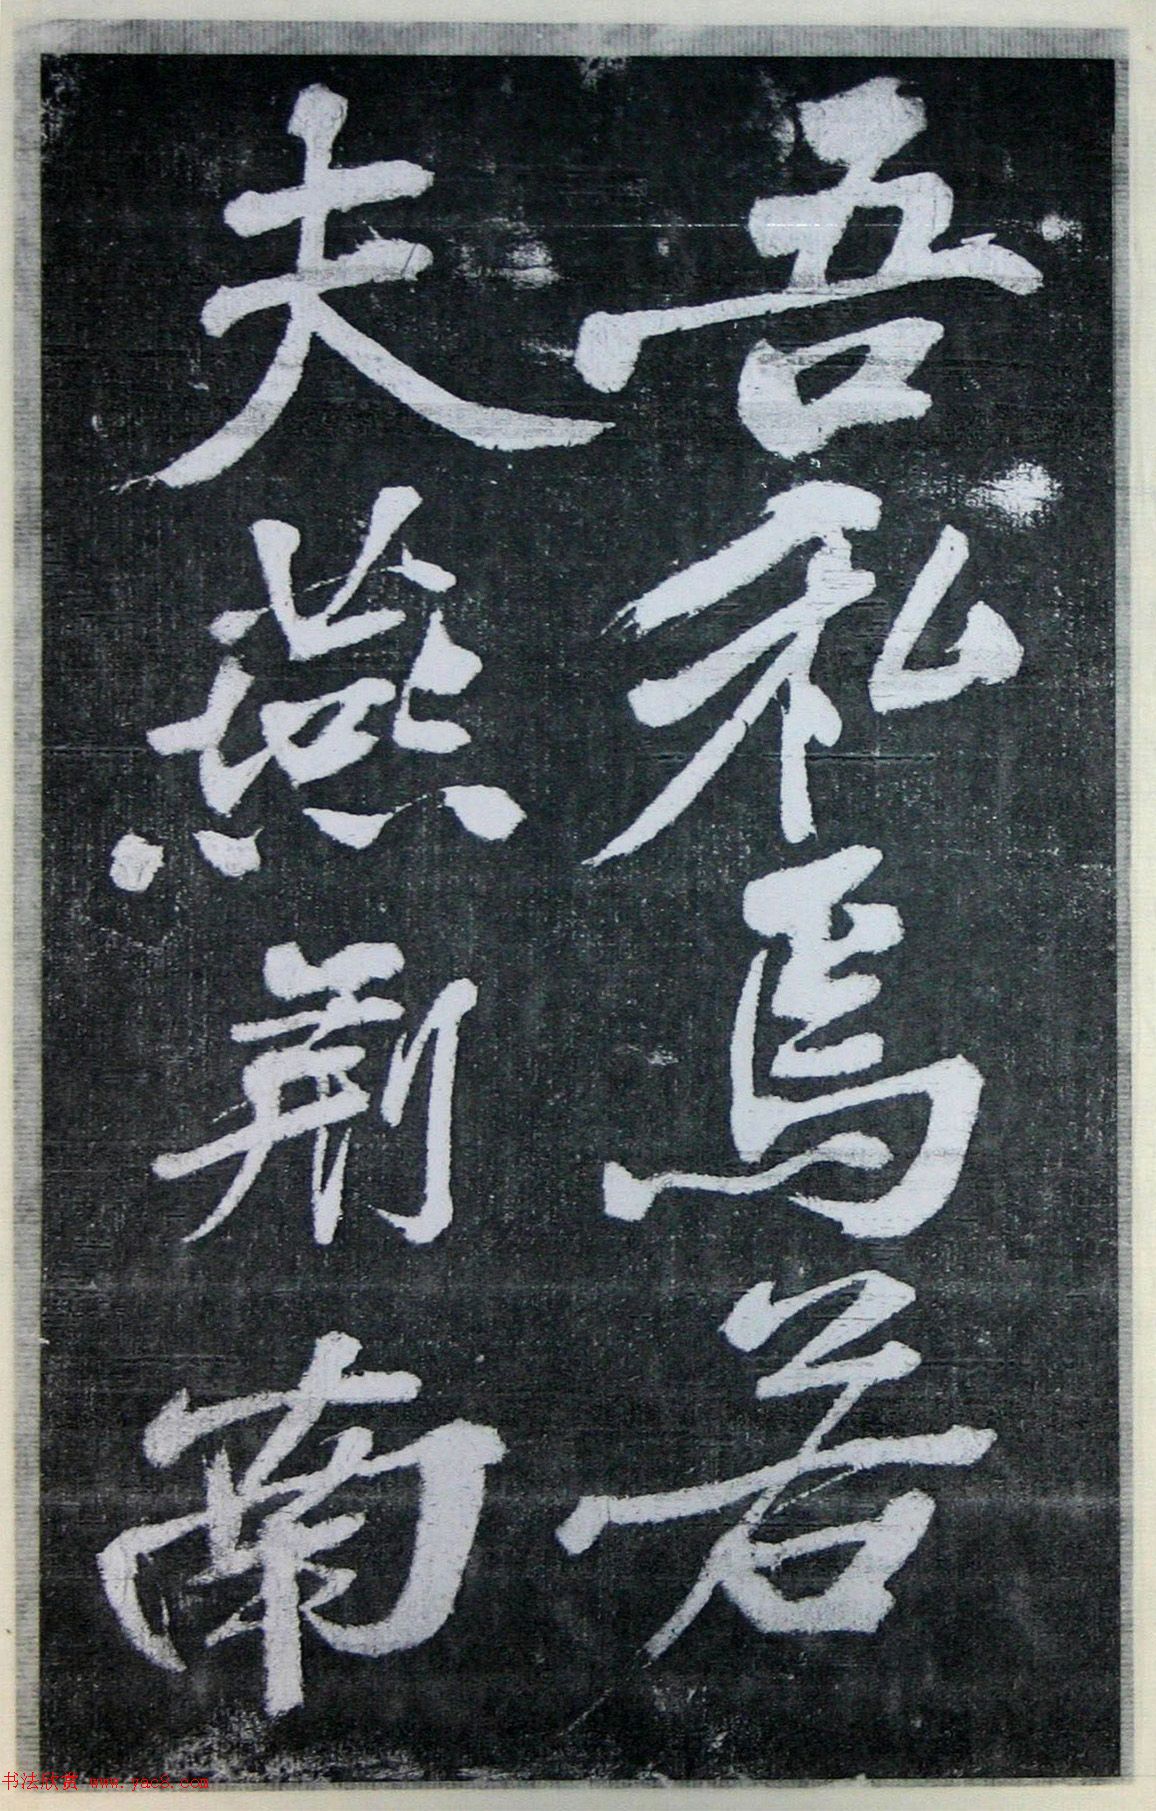 吾私焉若
夫燕荆南
书法欣赏 www.yac8.com